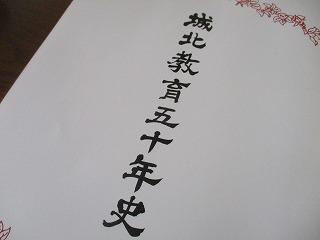 城北教育五十年史